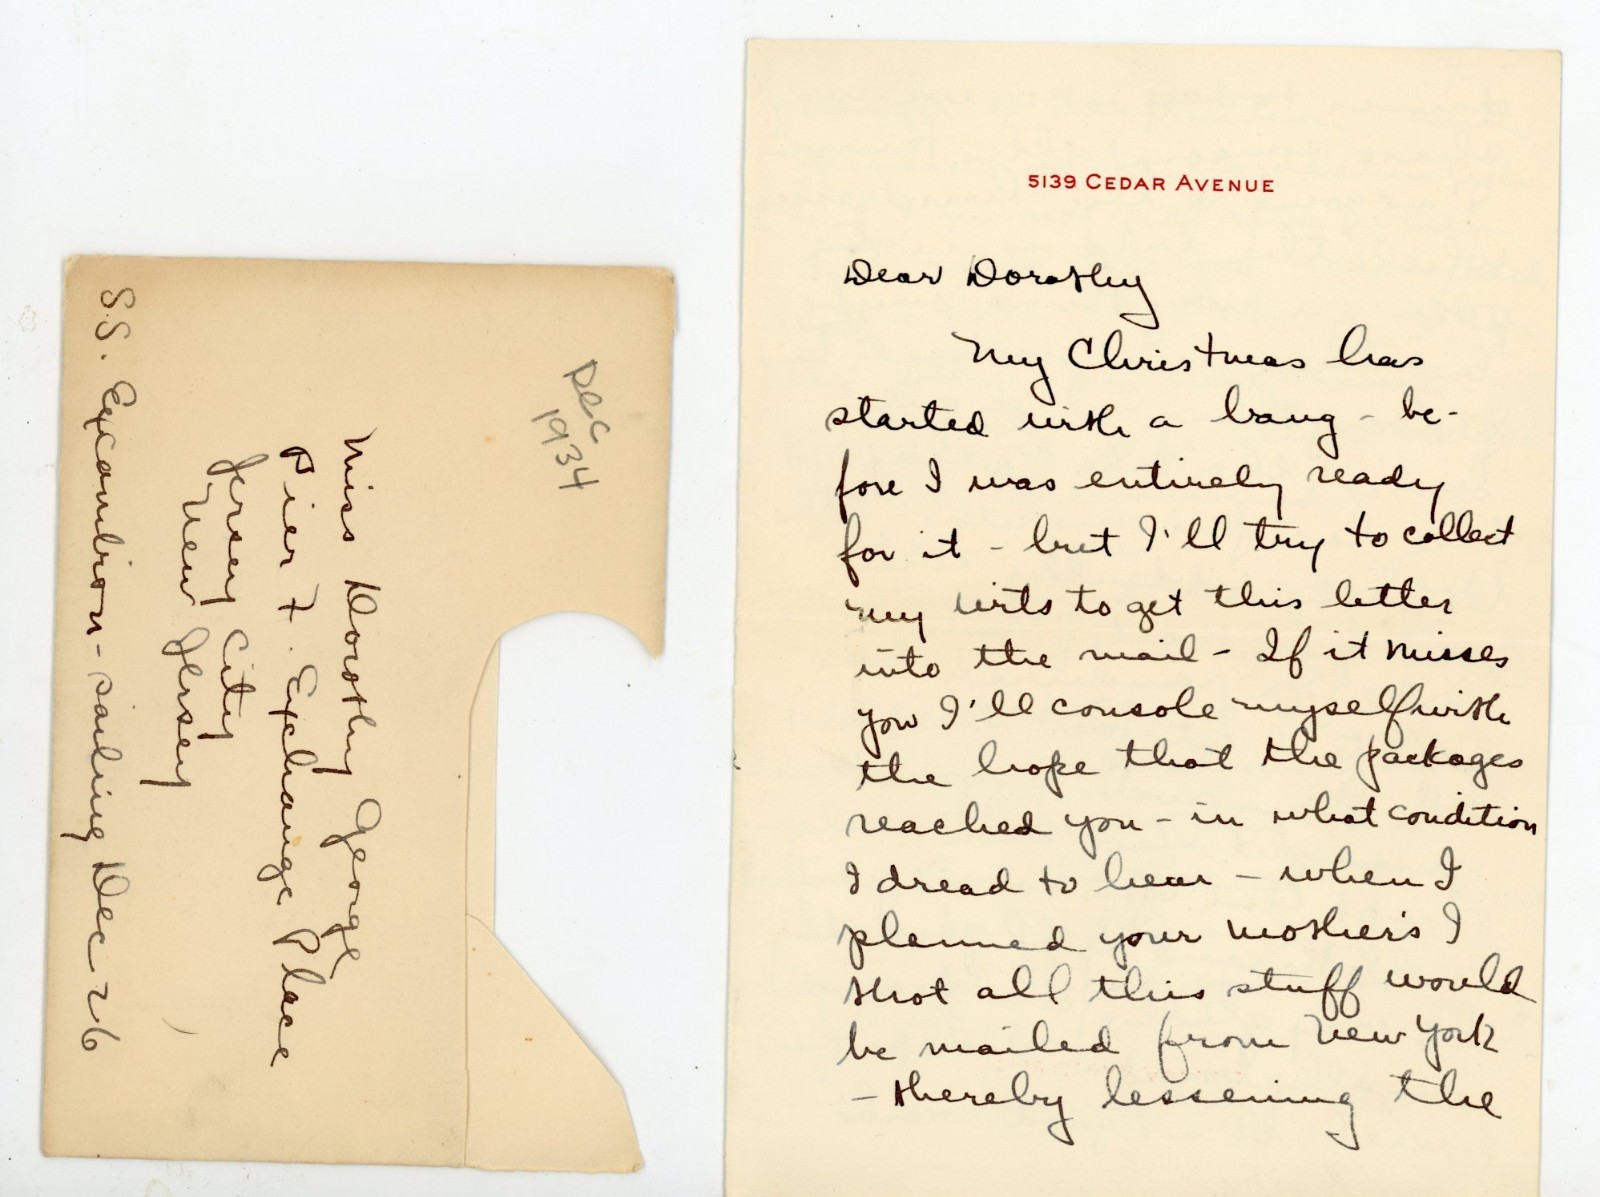 Dec
1934
Miss Dorothy George
Pier F. Exchange Place
Jersey City
New Jersey
S.S. Excambion - sailing Dec 26
5139 CEDAR AVENUE
Dear Dorothy
My Christmas has
started with a bang - be-
fore I was entirely ready
for it - but I'll try to collect
my wits to get this letter
into the mail - If it misses
you I'll console myself with
the hope that the packages
reached you - in what condition
I dread to hear - when I
planned your mother's I
thot all this stuff would
be mailed from New York
- thereby lessening the